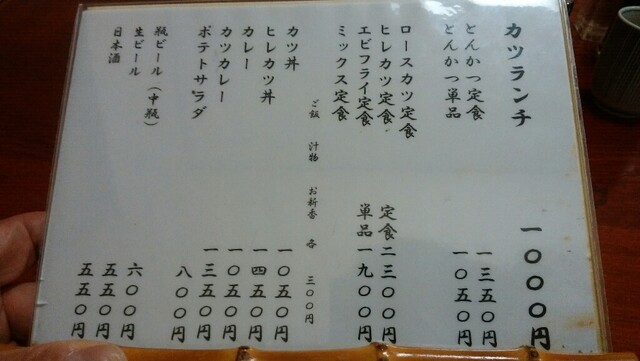 カツランチ 一〇〇〇円
とんかつ定食 一三五〇円
とんかつ単品 一〇五〇円
ロースカツ定食
ヒレカツ定食 定食二三〇〇円
エビフライ定食 単品一九〇〇円
ミックス定食
ご飯 汁物 お新香 各 三〇〇円
カツ丼 一〇五〇円
ヒレカツ丼 一四五〇円
カレー 一〇五〇円
カツカレー 一三五〇円
ポテトサラダ 八〇〇円
瓶ビール(中瓶) 六〇〇円
生ビール 五五〇円
日本酒 五五〇円